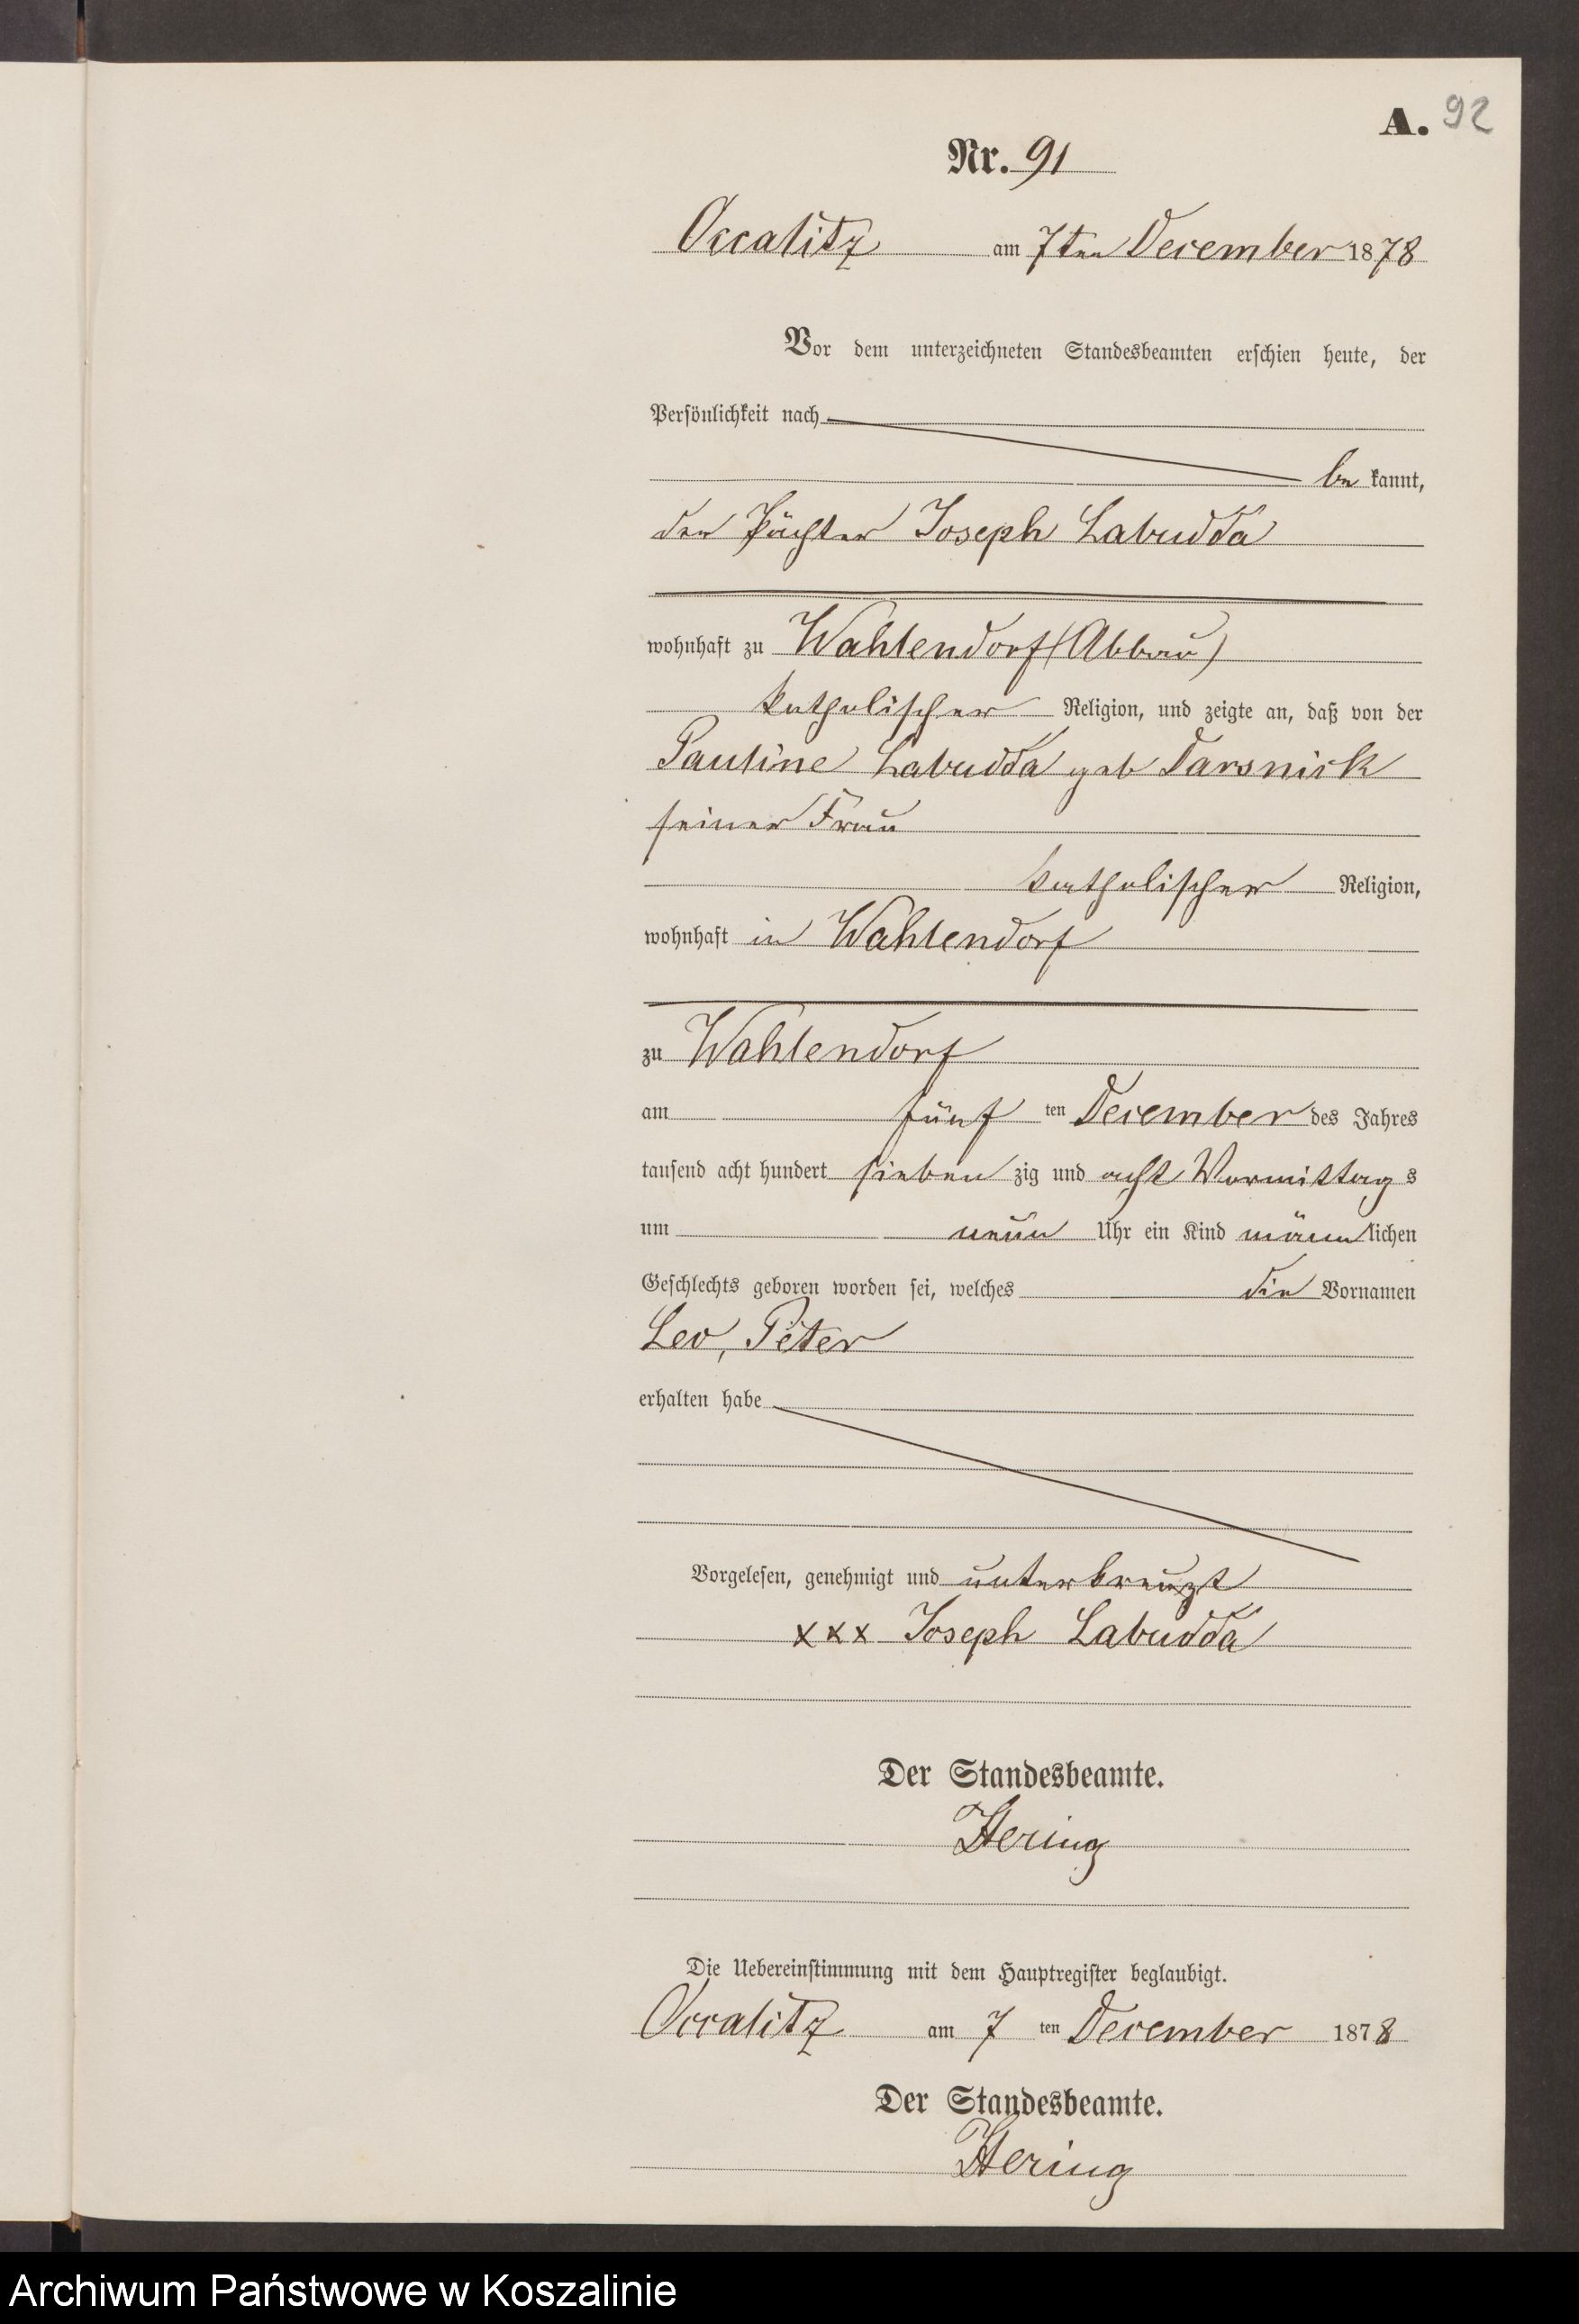 A. 92
Nr. 91
Occalitz am 7ten December 1878
Vor dem unterzeichneten Standesbeamten erschien heute, der
Persönlichkeit nach
be kannt,
der Pächter Joseph Labudda
wohnhaft zu Wahlendorf (Abbau)
katholischer Religion, und zeigte an, daß von der
Pauline Labudda geb Darsnick
seiner Frau
katholischer Religion,
wohnhaft in Wahlendorf
zu Wahlendorf
am fünf ten December des Jahres
tausend acht hundert sieben zig und acht Vormittag s
um neun Uhr ein Kind männlichen
Geschlechts geboren worden sei, welches die Vornamen
Leo, Peter
erhalten habe
Vorgelesen, genehmigt und unterkreuzt
xxx Joseph Labudda
Der Standesbeamte.
Hering
Die Uebereinstimmung mit dem Hauptregister beglaubigt.
Occalitz am 7 ten December 1878
Der Standesbeamte.
Hering
Archiwum Państwowe w Koszalinie